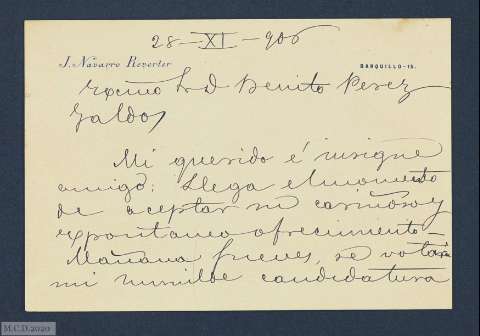 28-XI-906
J. Navarro Reverter
BARQUILLO-15.
Excmo Sr D Benito Perez
Galdos
Mi querido é insigne
amigo: Llega el momento
de aceptar su cariñoso y
expontaneo ofrecimiento-
Mañana jueves, se votará
mi humilde candidatura
M.C.D.2020